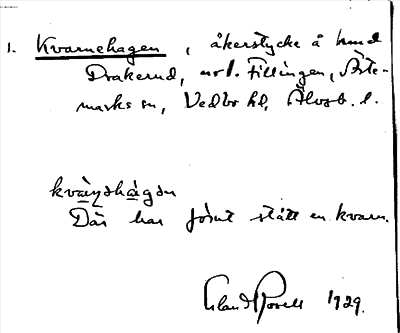 1. Kvarnehagen, åkerstycke å hmd
Drakerud, nr 1. Fillingen, Ärte-
marks sn, Vedbo hd, Älvsb. l.
Där har förut stått en kvarn.
Erland Rosell 1929.